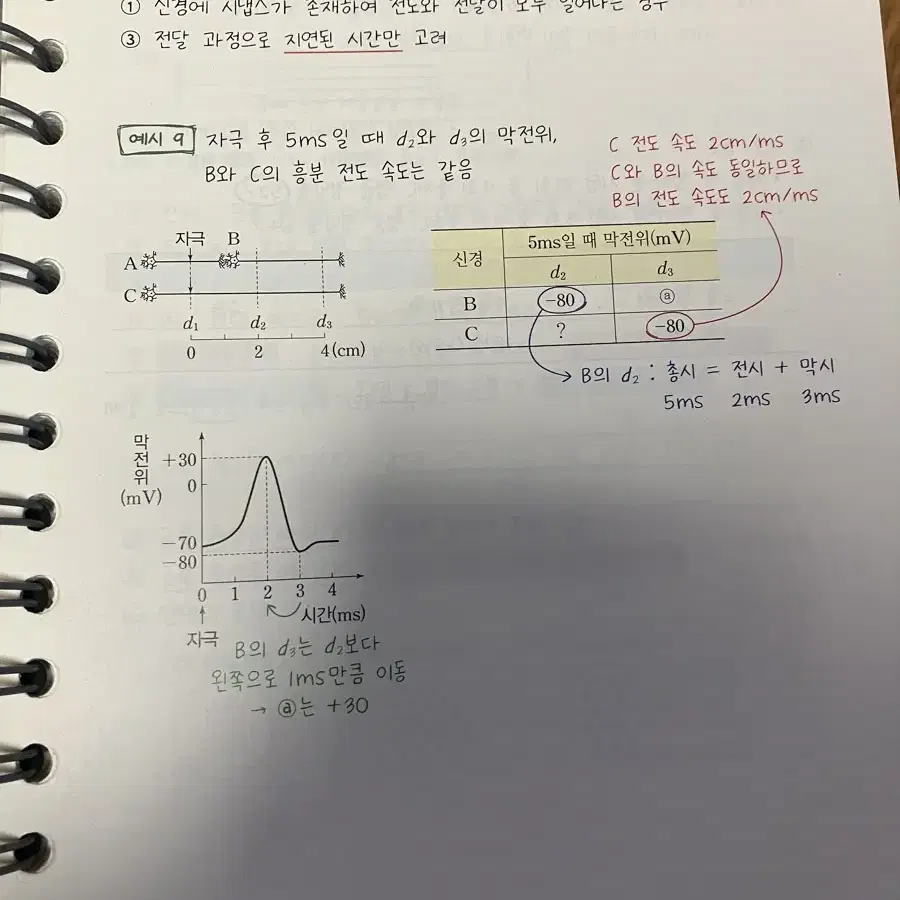 ① 신경에 시냅스가 존재하여 전도와 전달이 모두 일어나는 경우
③ 전달 과정으로 지연된 시간만 고려
예시 9 자극 후 5ms일 때 d₂와 d₃의 막전위,
B와 C의 흥분 전도 속도는 같음
C 전도 속도 2cm/ms
C와 B의 속도 동일하므로
B의 전도 속도도 2cm/ms
자극 B
A
C
d₁ d₂ d₃
0 2 4(cm)
신경 5ms일 때 막전위(mV)
d₂ d₃
B -80 ⓐ
C ? -80
B의 d₂ : 총시 = 전시 + 막시
5ms 2ms 3ms
막전위
(mV)
+30
0
-70
-80
0 1 2 3 4
시간(ms)
자극
B의 d₃는 d₂보다
왼쪽으로 1ms만큼 이동
→ ⓐ는 +30